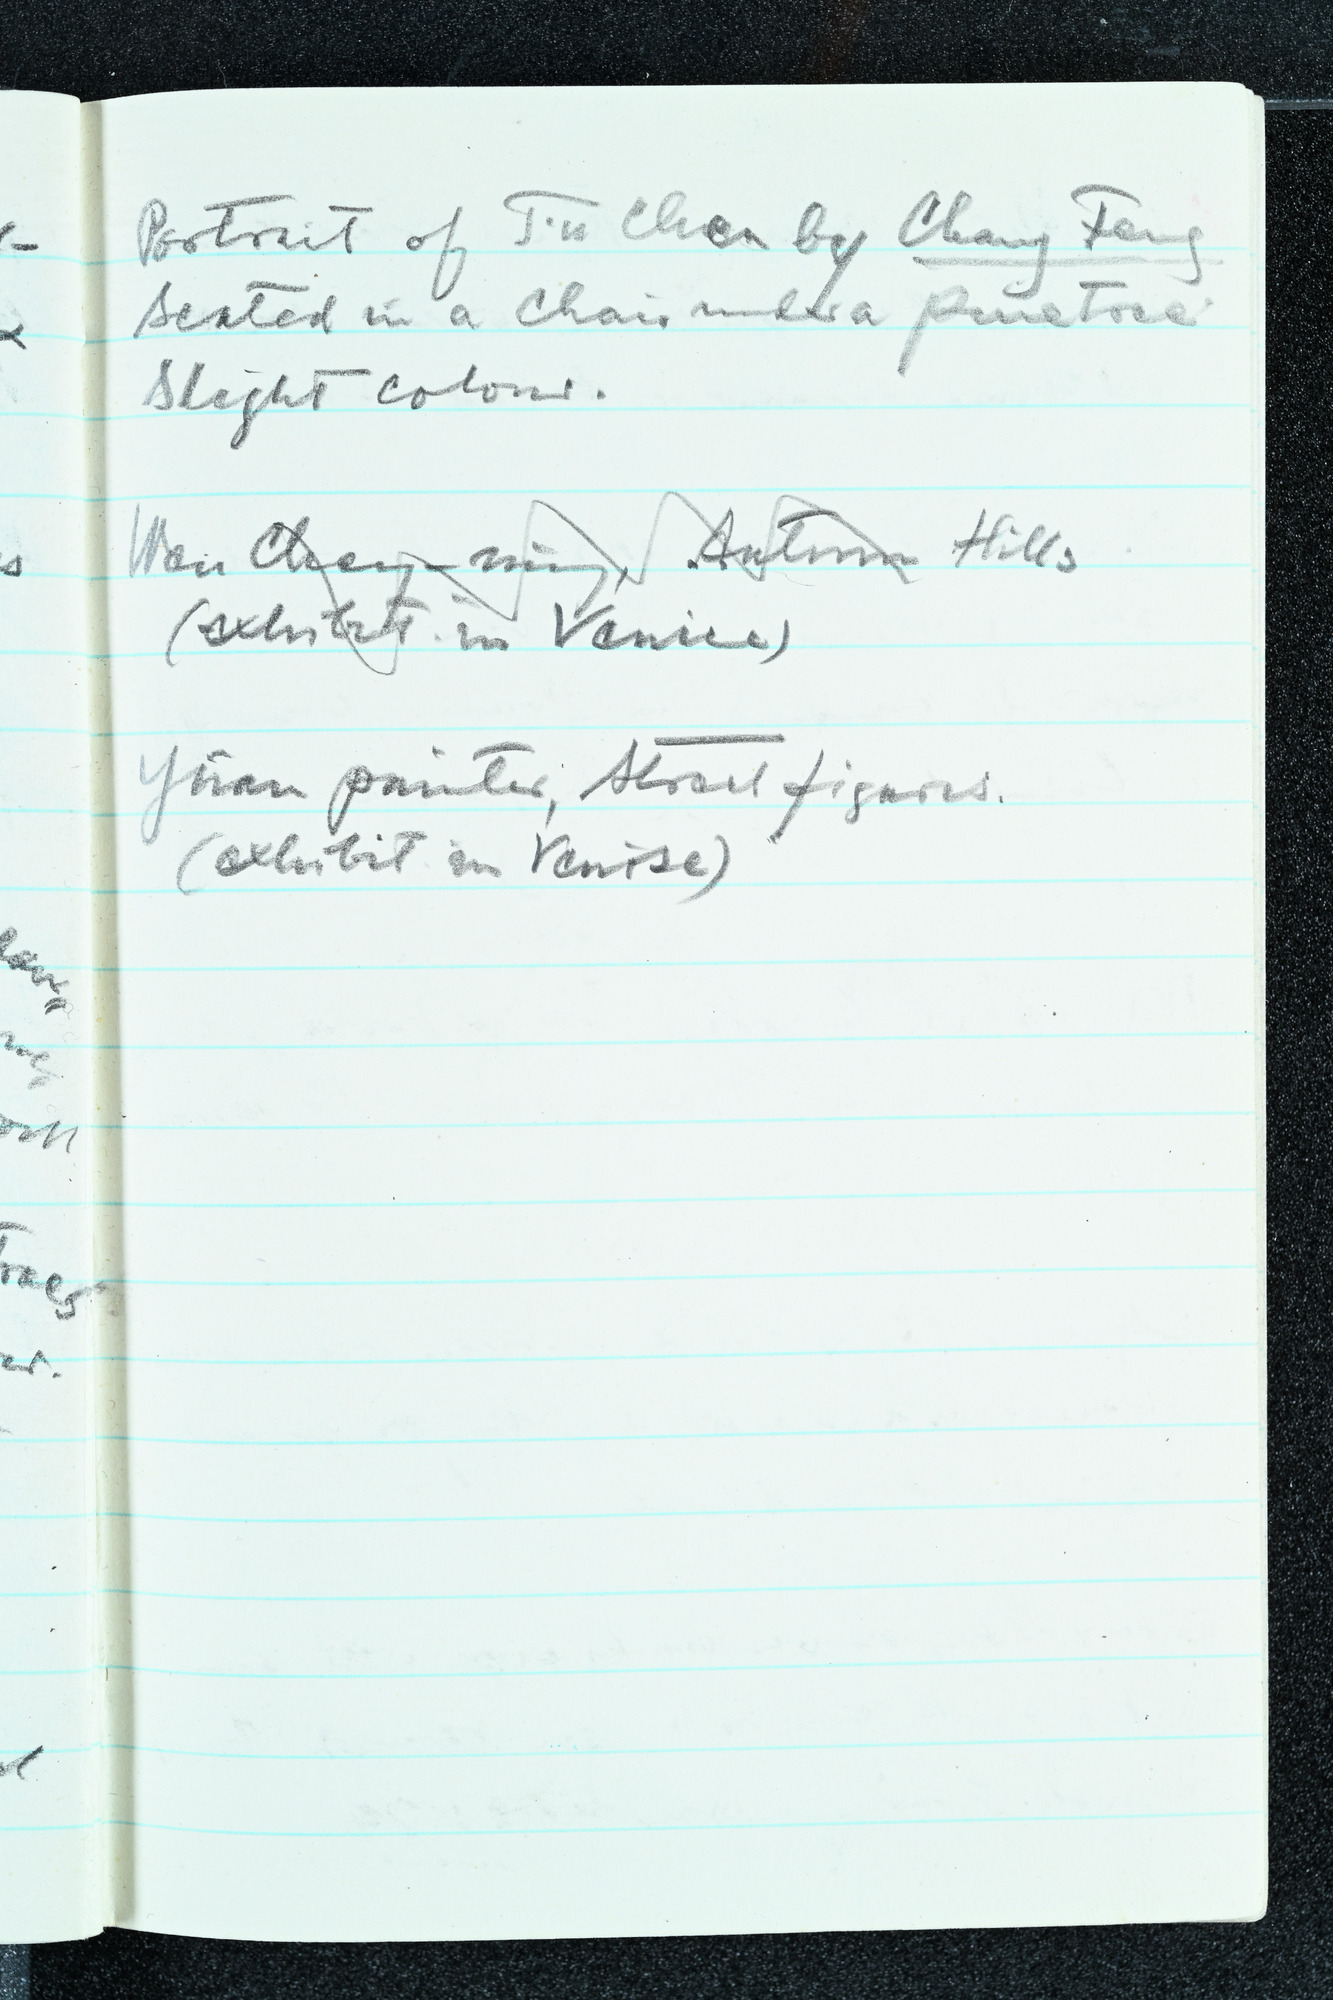 Portrait of Tu Chen by Chang Feng
seated in a chair under a pinetree
Slight colour.
Wen Cheng-ming, Autumn Hills
(exhibit in Venice)
Yüan painter, Street figures.
(exhibit in Venise)